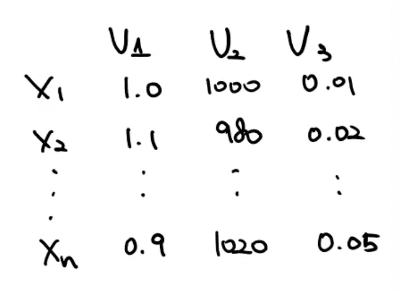 V1 V2 V3
X1 1.0 1000 0.01
X2 1.1 980 0.02
⋮ ⋮ ⋮ ⋮
Xn 0.9 1020 0.05